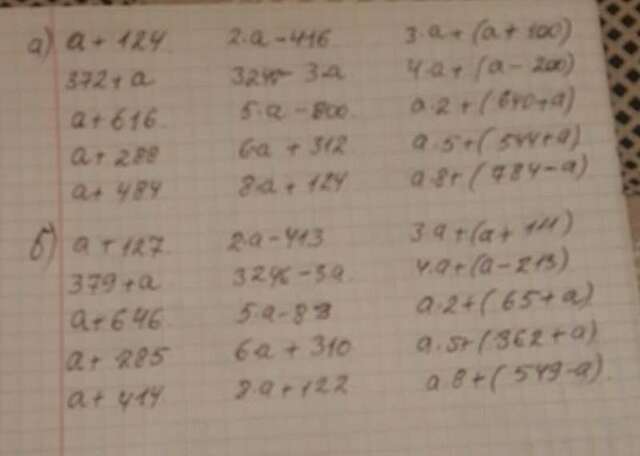 а) a + 124 2·a - 416 3·a + (a + 100)
372 + a - 3·a 4·a + (a - 200)
a + 616 5·a - 800 a·2 + (640 + a)
a + 288 6a + 312 a·5 + (544 + a)
a + 484 8·a + 124 a·8 + (784 - a)
б) a + 127 2·a - 413 3·a + (a + 111)
379 + a - 3a 4·a + (a - 213)
a + 646 5·a - a·2 + (65 + a)
a + 285 6a + 310 a·5 + (362 + a)
a + 414 8·a + 122 a·8 + (549 - a)